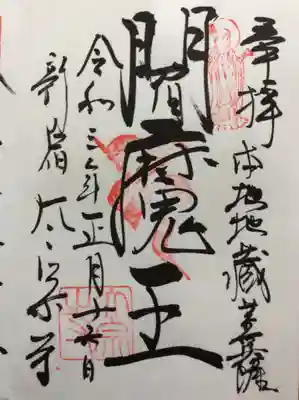 奉拝
本地地蔵菩薩
閻魔王
令和三年正月十六日
新宿 太宗寺